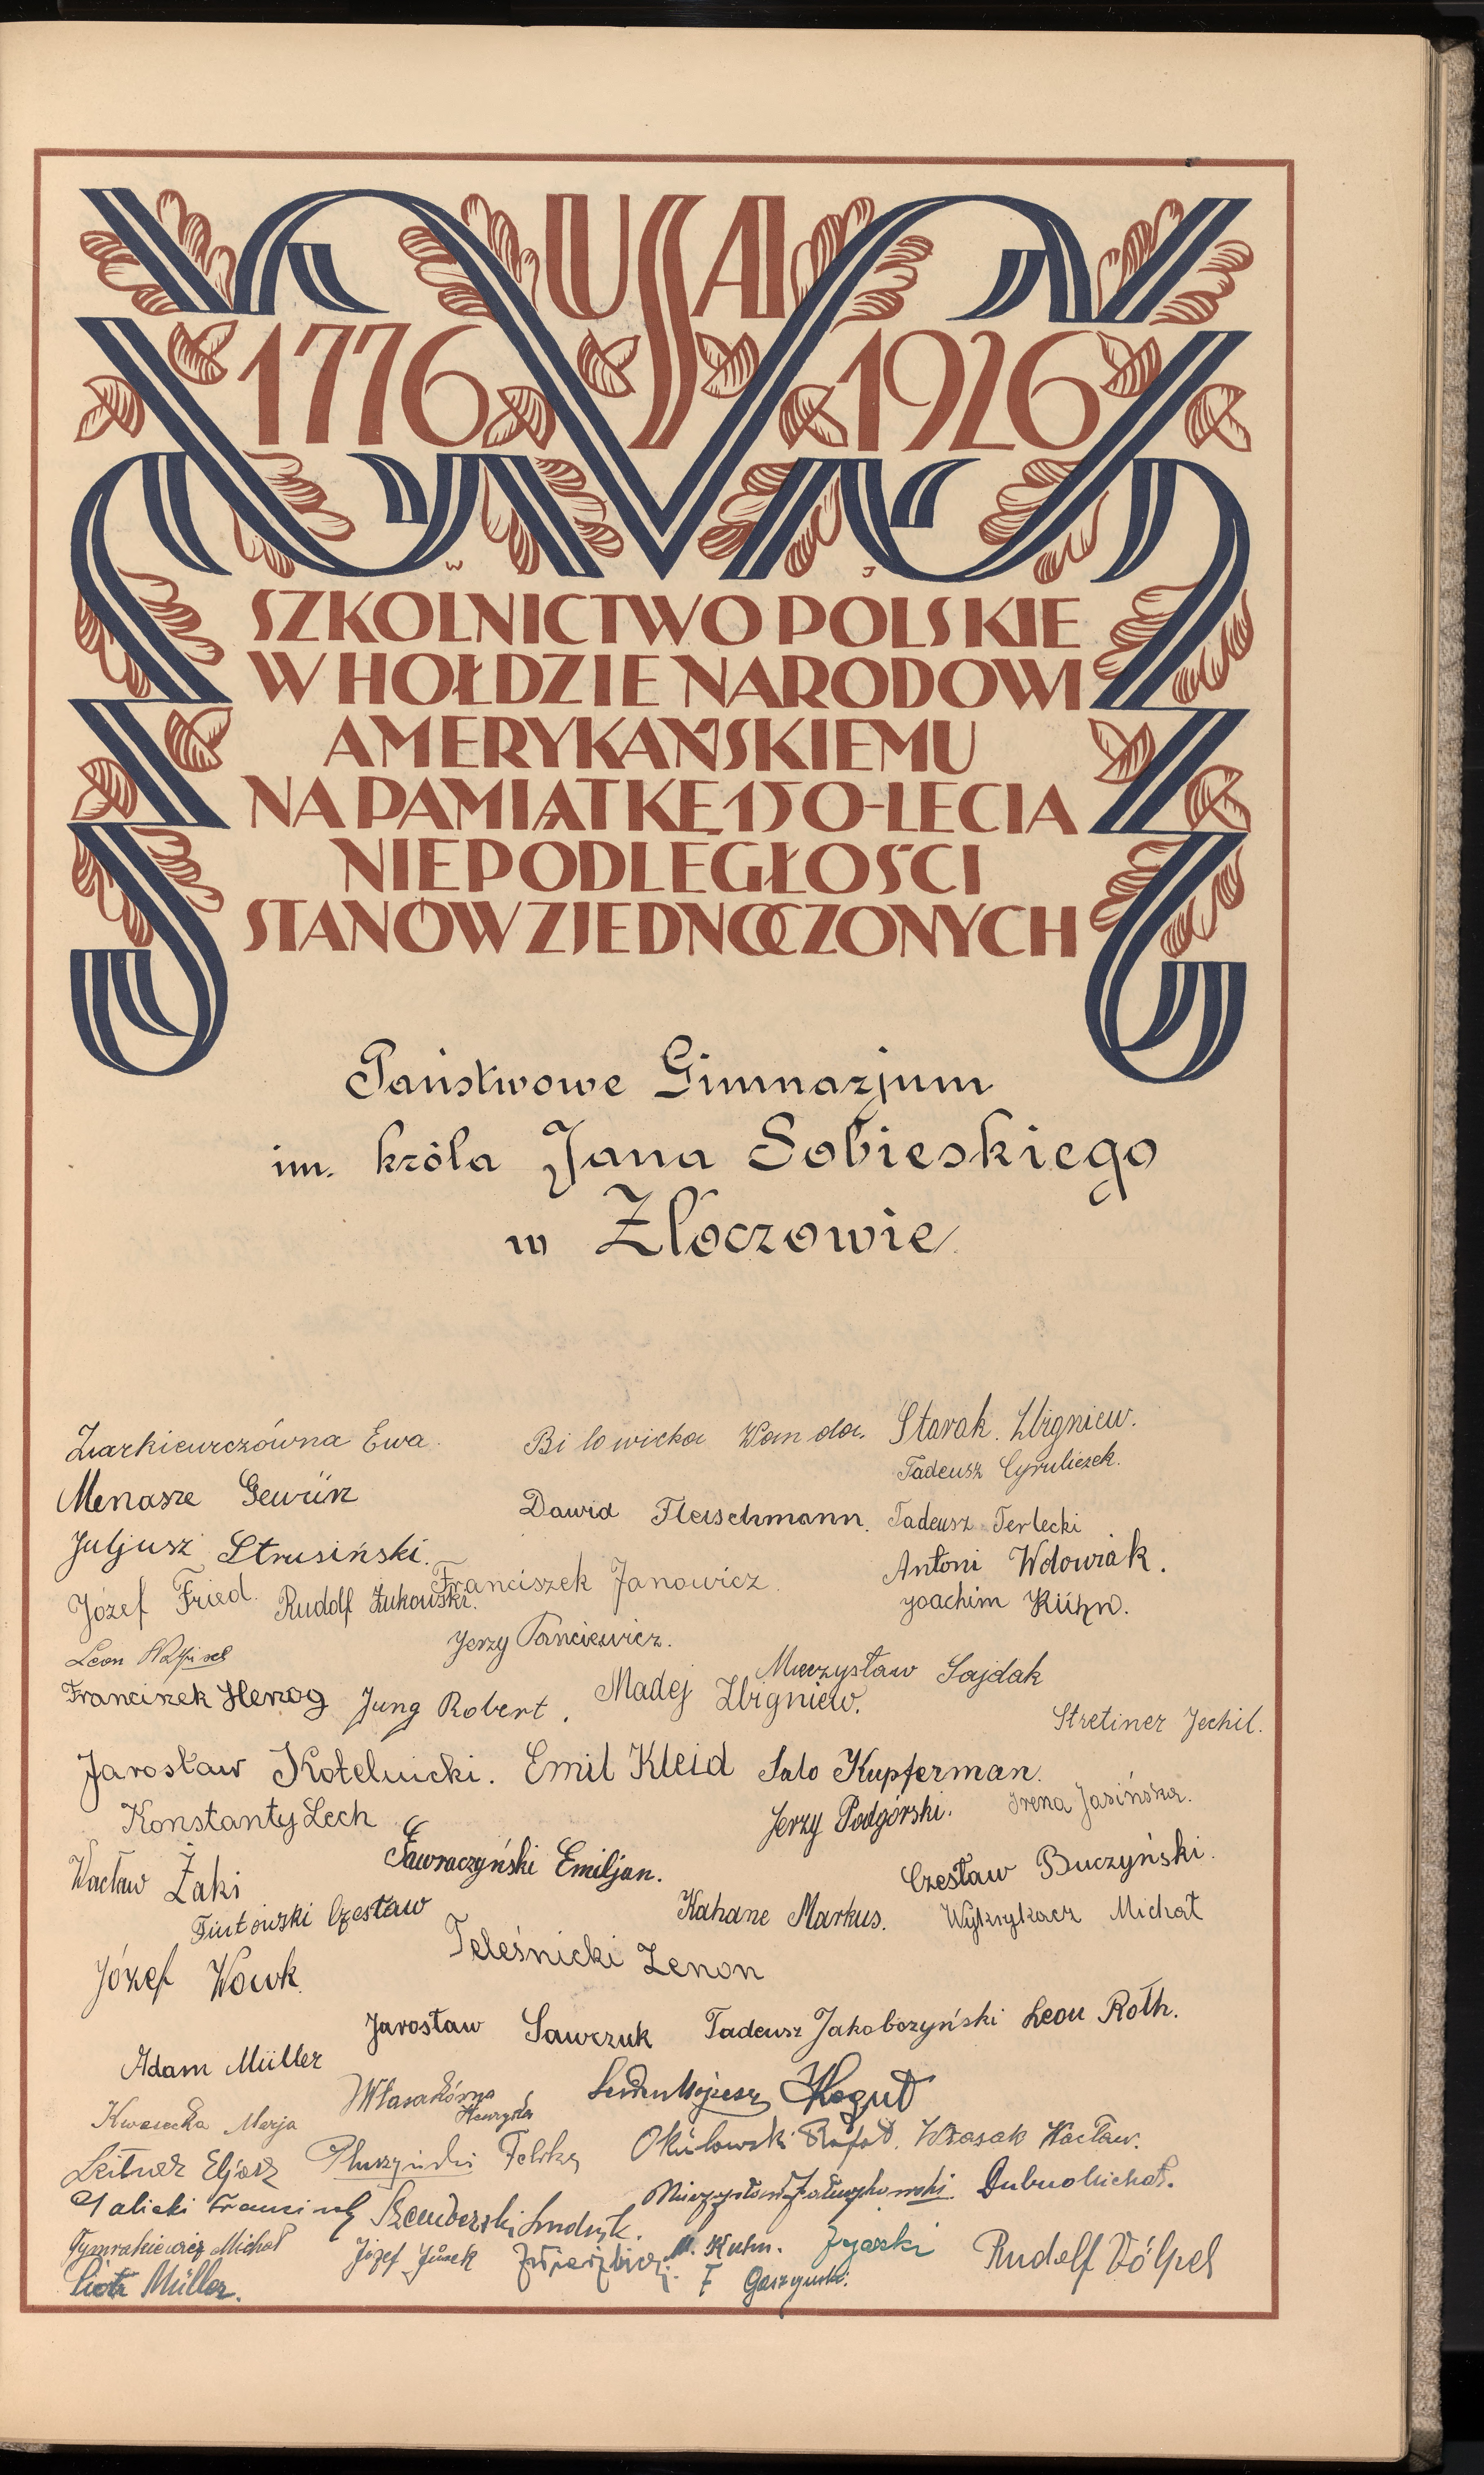 USA
1776 1926
W J
SZKOLNICTWO POLSKIE
W HOŁDZIE NARODOWI
AMERYKAŃSKIEMU
NA PAMIĄTKĘ 150-LECIA
NIEPODLEGŁOŚCI
STANÓW ZJEDNOCZONYCH
Państwowe Gimnazjum
im. króla Jana Sobieskiego
w Złoczowie
Żarkiewiczówna Ewa.
Bilowicka Wanda.
Starak Zbigniew.
Tadeusz Cyruliczek.
Menasze Gewürz
Dawid Fleischmann.
Tadeusz Terlecki
Juljusz Strusiński.
Antoni Wdowiak.
Józef Fried.
Rudolf Żukowski.
Franciszek Janowicz.
Joachim Kühn.
Leon
Jerzy Panciewicz.
Mieczysław Sajdak
Franciszek Herzog
Jung Robert.
Madej Zbigniew.
Stretiner Jechil.
Jarosław Kotelnicki.
Emil Kleid
Salo Kupferman.
Konstanty Lech
Jerzy Podgórski.
Irena Jasińska.
Wacław Żaki
Ławraczyński Emiljan.
Czesław Buczyński.
Fiutowski Czesław
Kahane Markus.
Wykrykacz Michał
Józef Wowk.
Teleśnicki Zenon
Jarosław Sawczuk
Tadeusz Jakóbczyński
Leon Roth.
Adam Müller
Własakówna
Henryka
Kogut
Kwasecka Marja
Okulowski Rafał.
Własak Wacław.
Leitner Eljasz
Pluszyński Feliks
Dubno Michał.
Galicki Franciszek
Szemberski Ludwik.
Tymrakiewicz Michał
Józef Jurek
M. Kuhn.
Rudolf Völpel
Piotr Müller.
F Gaszyński.